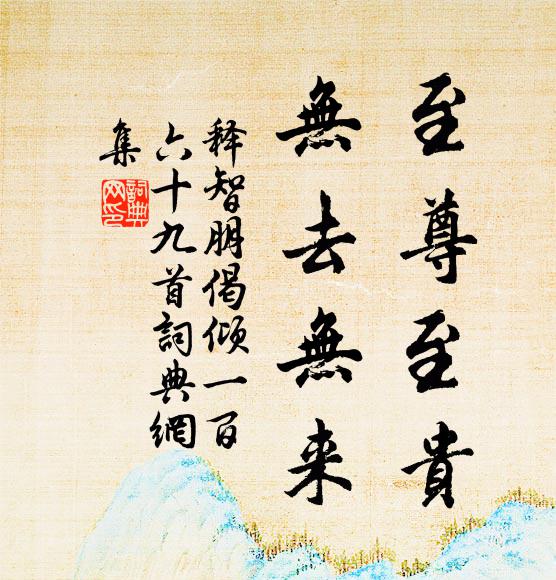 至尊至貴
無去無来
释智朋偈倾一百
六十九首詞典網
集
詞典网印